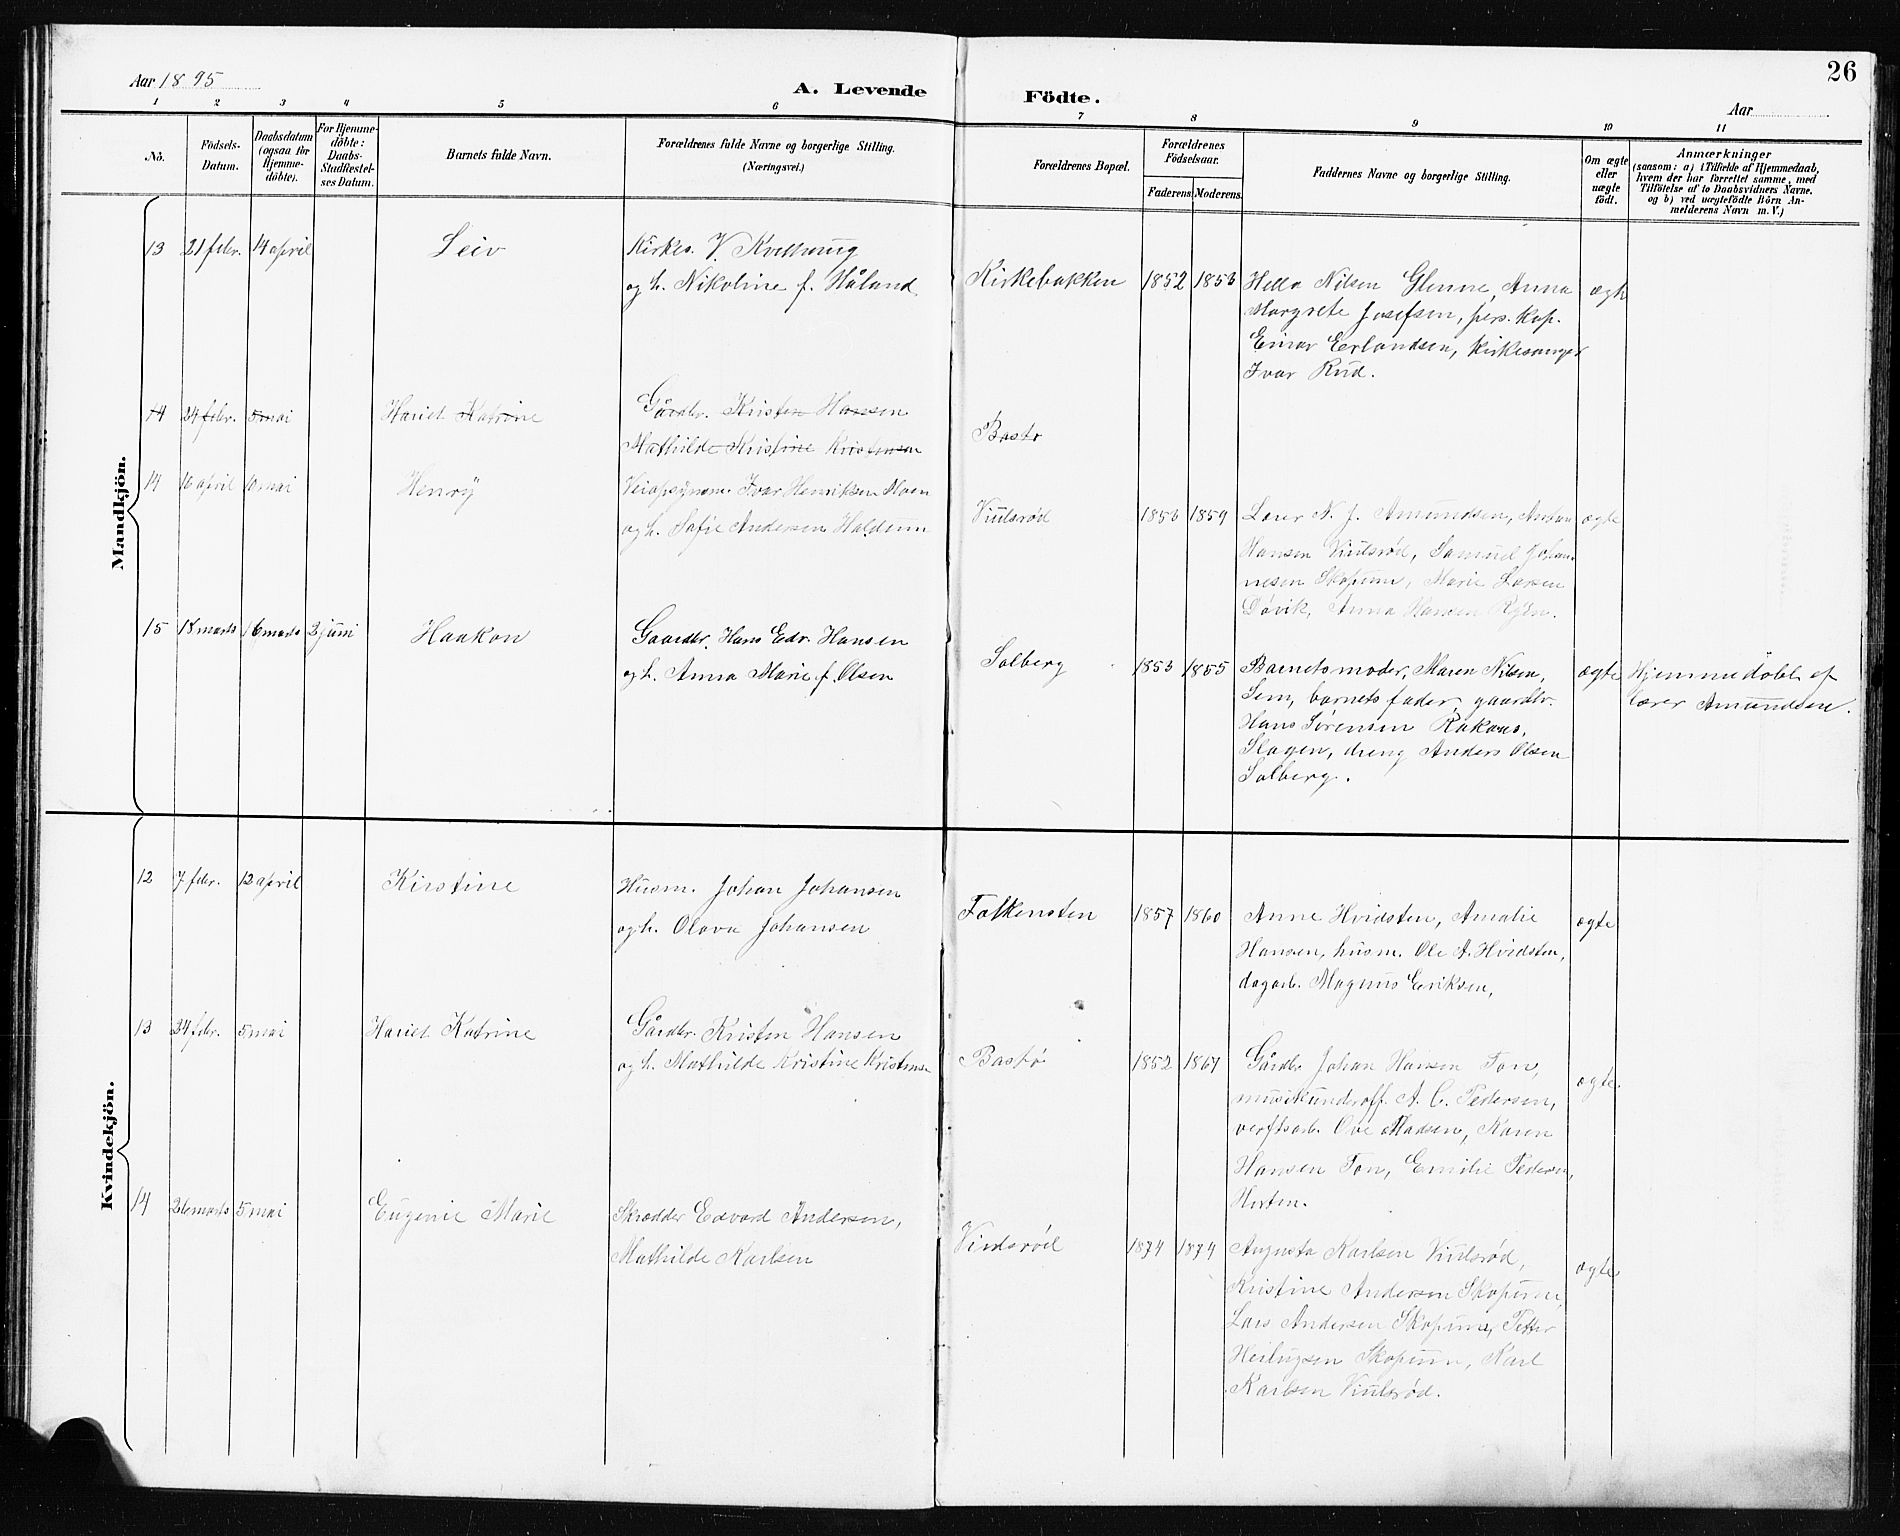 26
Aar 1895
A. Levende Födte.
Aar
1 2 3 4 5 6 7 8 9 10 11
No.
Födsels-Datum.
Daabsdatum (ogsaa for Hjemme-döbte).
For Hjemme-döbte: Daabs-Stadfæstel-ses Datum.
Barnets fulde Navn.
Forældrenes fulde Navne og borgerlige Stilling. (Næringsvei.)
Forældrenes Bopæl.
Forældrenes Födselsaar.
Faderens Moderens.
Faddernes Navne og borgerlige Stilling.
Om ægte eller uægte födt.
Anmærkninger (saasom: a) i Tilfælde af Hjemmedaab, hvem der har forrettet samme, med Tilföielse af to Daabsvidners Navne. og b) ved uægtefödte Börn An-melderens Navn m. V.)
Mandkjön.
13 21 febr. 14 april Leiv Kirkes. V. Kvelhaug
og h. Nikoline f. Håland
Kirkebakken 1852 1853 Hella Nilsen Glenne, Anna
Margrete Josefsen, pers. kap.
Einar Erlandsen, kirkesanger
Ivar Rud.
ægte
14 24 febr. 5 mai Hariet Katrine Gårdbr. Kristen Hansen
Mathilde Kristine Kristensen
Bastø
14 16 april 10 mai Henry Veiopsynsm. Ivar Henriksen Moen
og h. Sofie Andersen Haldum
Viulsrød 1856 1859 Lærer N. J. Amundsen, Anton
Hansen Viulsrød, Samuel Johan-
nesen Skopum, Marie Larsen
Døvik, Anna Hansen Rygn.
ægte
15 18 marts 16 marts 3 juni Haakon Gaardbr. Hans Edv. Hansen
og h. Anna Marie f. Olsen
Solberg 1853 1855 Barnets moder, Maren Nilsen,
Sem, barnets fader, gaardbr.
Hans Sørensen Råkaas,
Slagen, dreng Anders Olsen
Solberg.
ægte
Hjemmedøbt af
lærer Amundsen.
Kvindekjön.
12 7 febr. 12 april Kirstine Husm. Johan Johansen
og h. Olava Johansen
Falkensten 1857 1860 Anne Hvidsten, Amalie
Hansen, husm. Ole A. Hvidsten,
dagarb. Magnus Eriksen,
ægte
13 24 febr. 5 mai Hariet Katrine Gårdbr. Kristen Hansen
og h. Mathilde Kristine Kristensen
Bastø 1852 1867 Gårdbr. Johan Hansen Ton,
musikunderoff. A. C. Pedersen,
verftsarb. Ove Madsen, Karen
Hansen Ton, Emilie Pedersen,
Horten.
ægte.
14 26 marts 5 mai Eugenie Marie Skrædder Edvard Andersen,
Mathilde Karlsen
Viulsrød 1874 1874 Augusta Karlsen Viulsrød,
Kristine Andersen Skopum,
Lars Andersen Skopum, Petter
Skopum, Karl
Karlsen Viulsrød.
ægte